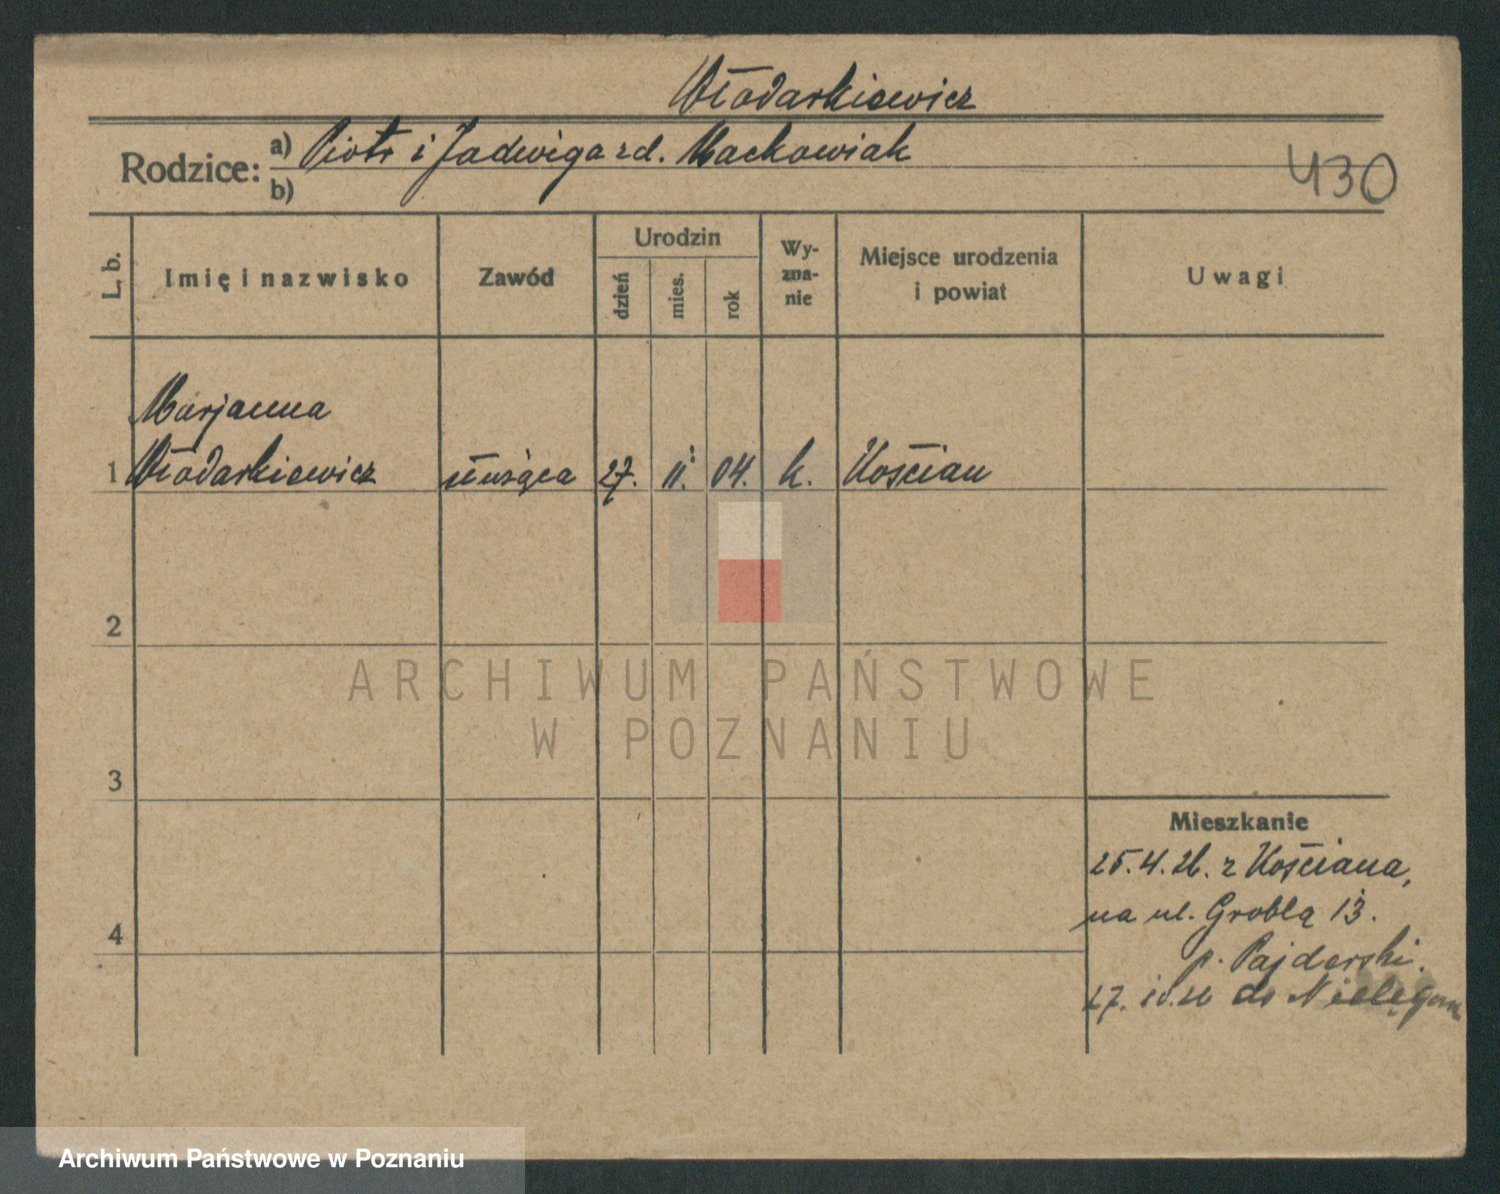 Włodarkiewicz
Rodzice: a) Piotr i Jadwiga zd. Maćkowiak
b)
430
L. b.
Imię i nazwisko
Zawód
Urodzin
dzień
mies.
rok
Wy-
zna-
nie
Miejsce urodzenia
i powiat
Uwagi
Marjanna
1 Włodarkiewicz służąca 27. 11. 04. k. Kościan
2
3
4
Mieszkanie
25.4.26. z Kościana,
na ul. Groblą 13.
p. Pajderski.
27. do
ARCHIWUM PAŃSTWOWE
W POZNANIU
Archiwum Państwowe w Poznaniu